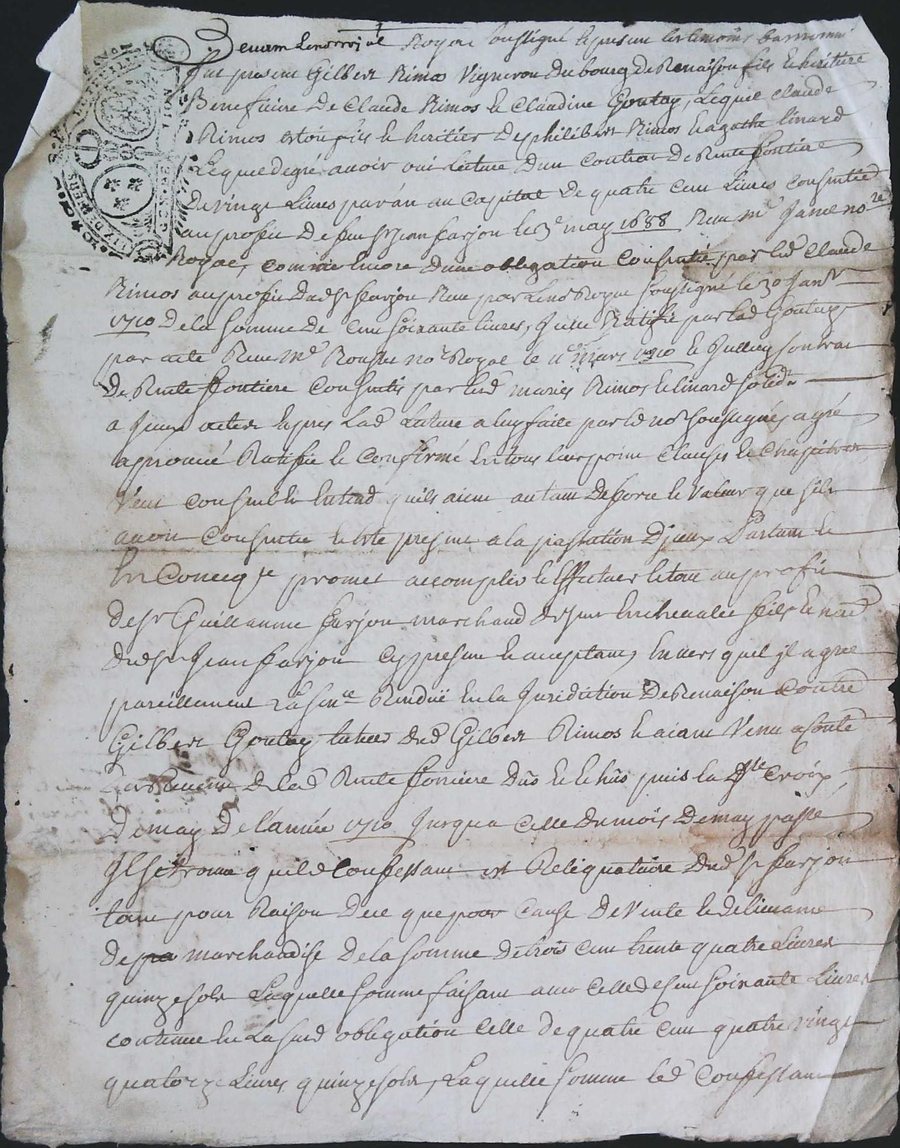 GENER LION
DEUX
Devant Le no.re Royal soussigné et present les temoins bas nommé
fut present Gilbert Rimos Vigneron du bourg de Renaison fils et heritier
Benefficiere De Claude Rimos et Claudine Goutay, Lequel Claude
Rimos estoit fils et heritier de philibert Rimos et agathe Linard
Lequel de gré avoir oui Lecture D'un Contrat De Rente fontiere
De vingt Livres par an au Capital De quatre cent Livres consentie
au profit De feu Sr jean farjon le may 1688 Receu me Jame no.re
Royal, comme encore d'une obligation Consentie par led Claude
Rimos au profit dud Sr farjon Receu par Le no.re Royal soussigné le 30 Janvr
1710 De la somme De Cent soixante livres, Ratifié par lad Goutay
par acte Receu Me no.re Royal le mars 1710 le
De Rente fontiere Consentis par led mariés Rimos et Linard
a actes apres Lad Lecture a luy faite par led no.re soussigné, a gré
aprouvé Ratiffié et Confirmé en tous leurs point Clauses et Chapitres
Veut consent et entend qu'ils aient autant De force et Valeur que s'il
avoit Consentie et esté present a la passation D'iceux Partant et
En Conceq.ce promet accomplir et Effectuer le tout au profit
de Sr Guillaume farjon marchand fils et
Dud Sr Jean farjon Cy present et acceptant, Envers quel il a gré
pareillement La sen.ce Renduë en la Juridiction De Renaison contre
Gilbert Goutay tuteur Dud Gilbert Rimos et aiant Venu a Compte
De lad Rente fonciere puis la Ste Croix,
De may De l'année 1710 Jusqua Celle Du mois De may passé
Il s'est trouvé quil d Confessant est Reliquataire Dud Sr farjon
tant pour Raison De ce que pour Cause De Vente et delivrance
De marchandise De la somme De trois cent trente quatre Livres
quinze sols Laquelle somme faisant avec Celle de Cent soixante Livres
contenue en La susd obligation Celle De quatre Cent quatre vingt
quatorze Livres quinze sols, Laquelle somme led Confessant